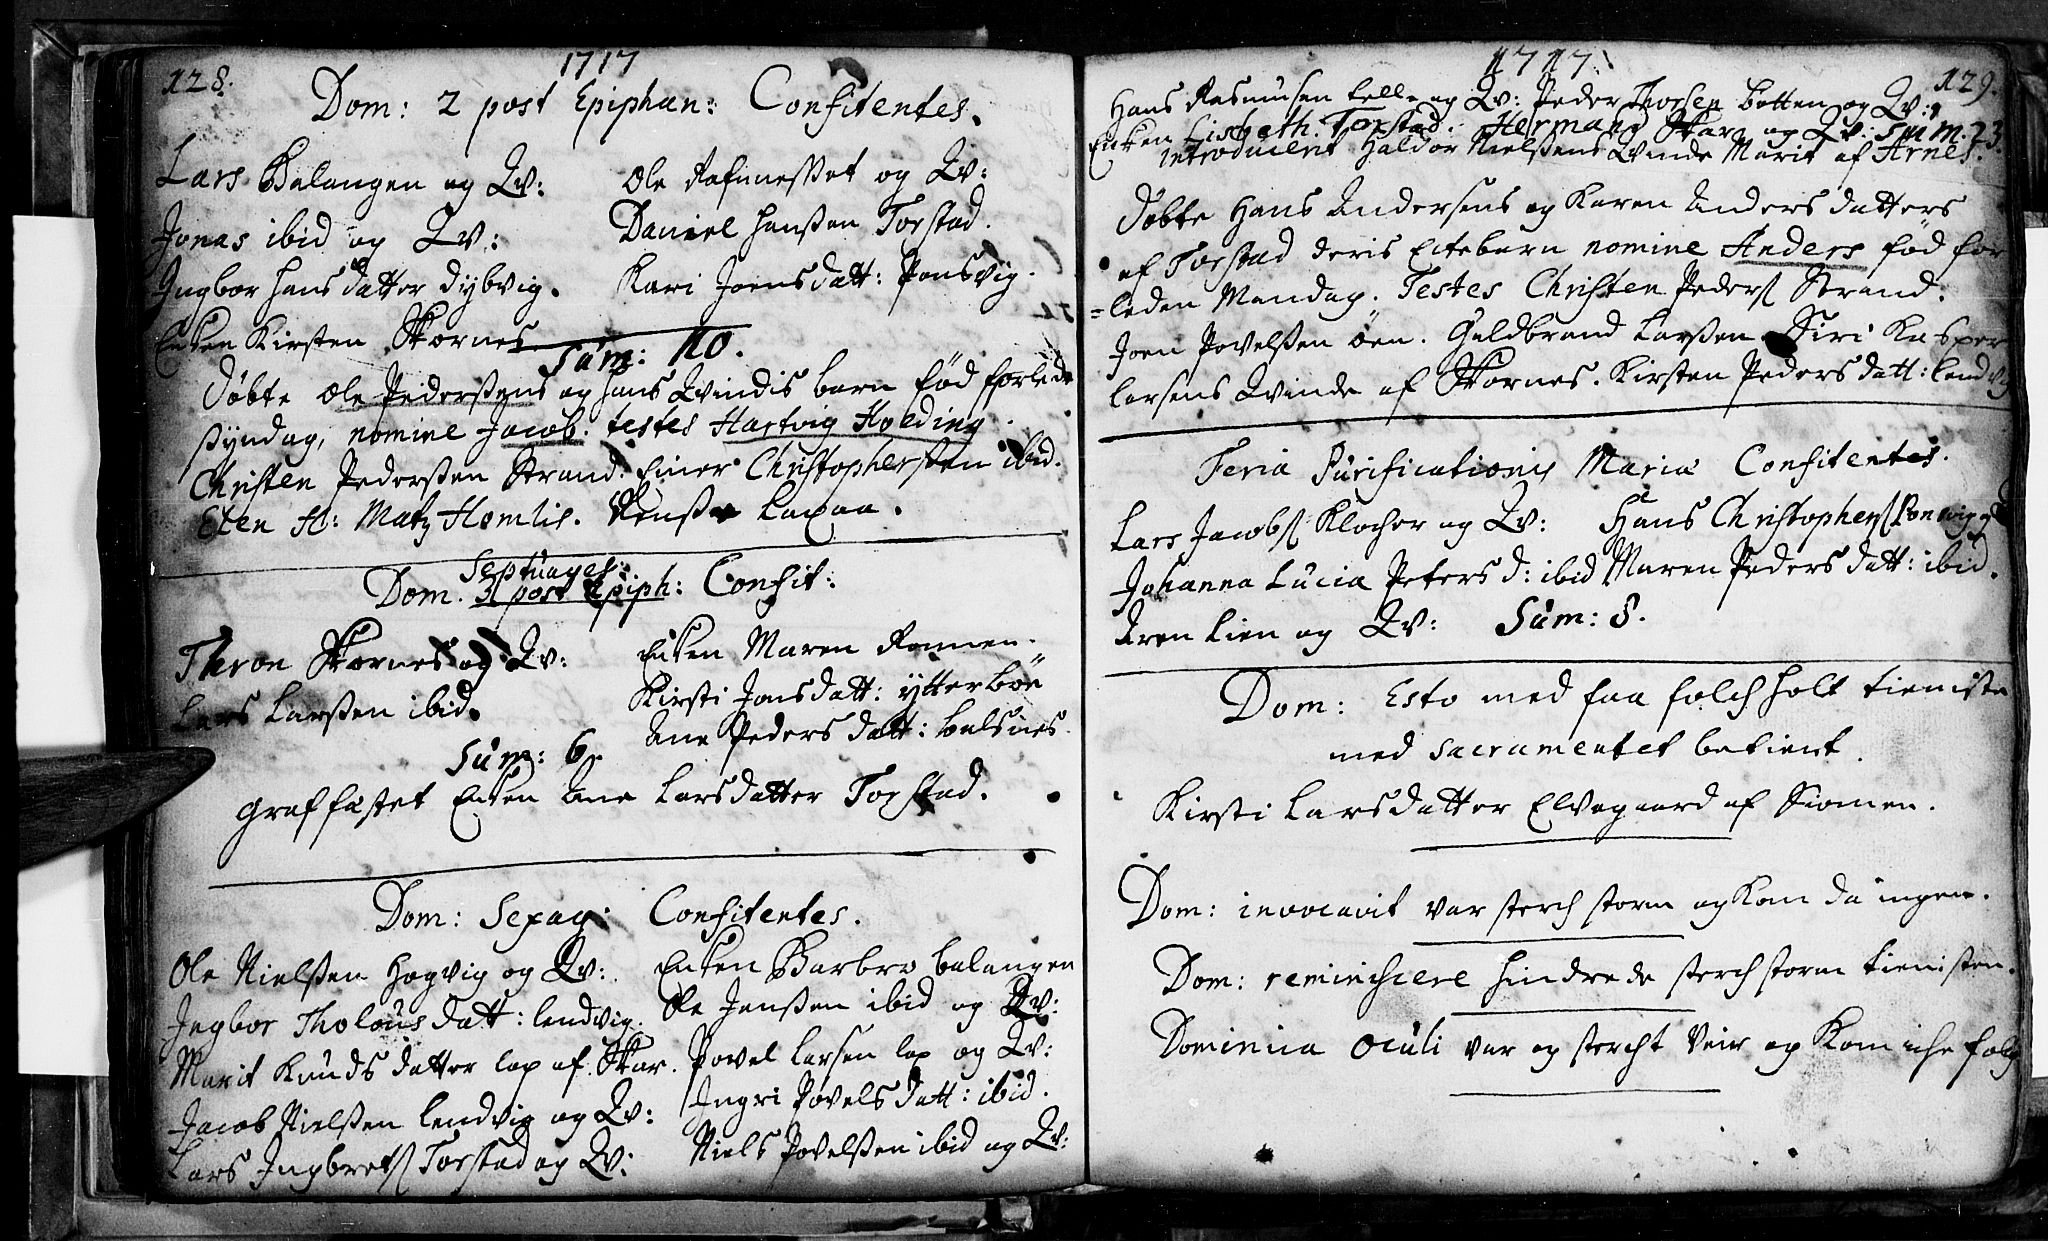 128.
1717
Dom: 2 post Epiphan: Confitentes.
Lars Balangen og Qv:
Jonas ibid og Qv:
Ingbor Hansdatter Dybvig.
Enken Kirsten Skornes
Ole Rafnnesset og Qv:
Daniel Hanssen Torstad.
Kari Joensdatt: Ponsvig.
Sum: 10.
Døbte Ole Pederssens og hans Qvindis barn fød forlede
Syndag, nomine Jacob. testes Hartvig Holding
Christen Pederssen Strand. Einer Christopherssen ibid.
Elen H: Matz Homlis. Laxaa.
Septuages:
Dom. 3 post Epiph: Confit:
Theron Skornes og Qv:
Lars Larssen ibid.
Enken Maren Ronnen.
Kirsti Jonsdatt: ytterbøe
Ane Pedersdatt: Halsnes.
Sum: 6.
Graffæstet Enken Ane Larsdatter Torstad.
Dom: Sexag: Confitentes.
Ole Nielssen Hogvig og Qv:
Ingbor Tholousdatt: Lendvig.
Marit Knudsdatter lap af Skar.
Jacob Nielssen Lendvig og Qv:
Lars Ingbrets Torstad og Qv:
Enken Barbro Balangen
Ole Jenssen ibid og Qv:
Povel Larsen lap og Qv:
Ingri Povelsdatt: ibid.
Niels Povelssen ibid og Qv:
1717.
129.
Hans Rasmusen og Qv: Peder Thorsen botten og Qv:
Enken Lisbeth Torstad. Herman Skar og Qv: Sum. 23.
introducert Haldor Nielssens Qvinde Marit af Arnes.
Døbte Hans Andersens og Karen Andersdatters
af Torstad deris Ectebarn nomine Anders fød for
=leden Mandag. Testes Christen Peders Strand.
Joen Povelssen öen. Guldbrand Larssen. Siri Kasper
Larsens Qvinde af Skornes. Kirsten Pedersdatt: Lendvig
Feria Purificationis Mariæ Confitentes.
Lars Jacobs Klocher og Qv: Hans Christophers Ponsvig
Johanna Lucia Petersd: ibid Maren Pedersdatt: ibid.
Aren Lien og Qv: Sum: 8.
Dom: Esto med faa folch holt tieniste
med sacramentet betient.
Kirsti Larsdatter Elvegaard af Siomen.
Dom: invocavit var sterch storm og kom da ingen.
Dom: reminiscere hindrede sterch storm tienisten.
Dominica Oculi var og stercht Veir og kom iche folch